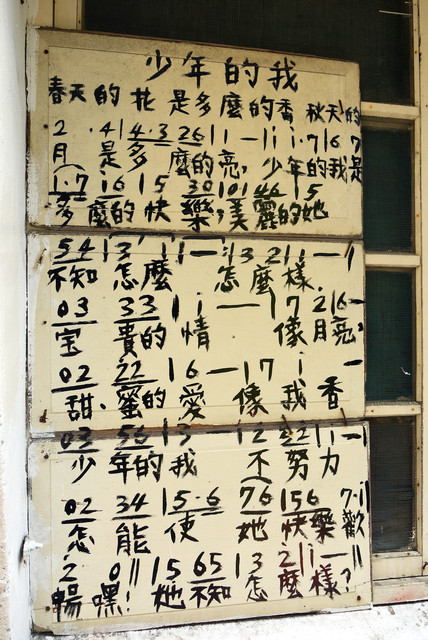 少年的我
春天的花 是多麼的香 秋天的
2 . 4|4·3 26|1 — |i i·7|6 7
月 是多 麼的亮, 少年的我是
|1·7 i6|5 30|01 46|5
多麼的快樂,美麗的她
54|3 — :|3 2|1 — |
不知怎麼 怎麼樣.
03 33|i — |7 2|6 —
宝 貴的 情 像月亮,
02 22|6 — |7 i —
甜.蜜的愛 像我香
03 56|3 — |2 32|1 —|
少年的我 不努力
02 34|5·6 76|56 7·i|
怎能使 她快樂歡
2 0‖5 65|3 2|i — ‖
暢嘿! 她不知怎麼樣?